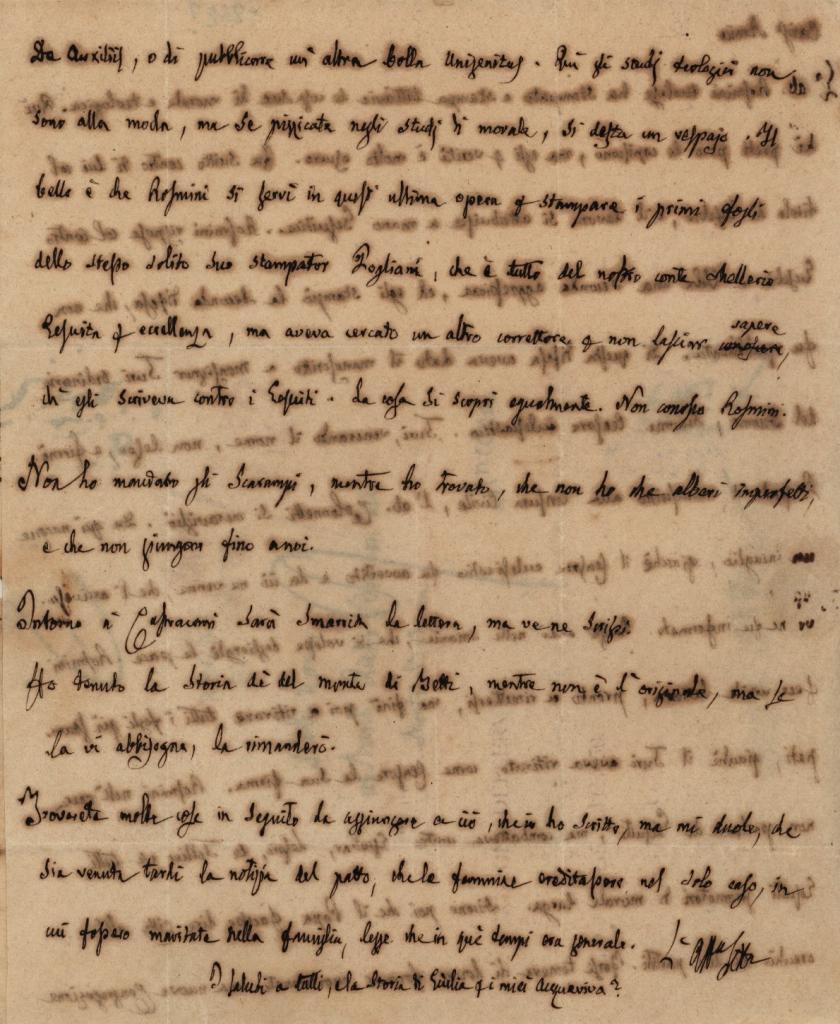 De Auxiliis, o di pubblicare un' altra bolla Unigenitus. Più gli studj teologici non
sono alla moda, ma se pizzicate negli studj di morale, si desta un vespajo. Il
bello è che Rosmini si servì in quest' ultima opera p stampare i primi fogli
dello stesso solito suo stampator Pogliani, che è tutto del nostro conte Mellerio
Gesuita p eccellenza, ma aveva cercato un altro correttore p non lasciar sapere
ch' egli scriveva contro i Gesuiti. La cosa si scoprì egualmente. Non conosco Rosmini.
Non ho mandato gli Scarampi, mentre ho trovato, che non ho che alberi imperfetti,
e che non giungon fino a noi.
Intorno a' Castracani sarà smarrita la lettera, ma ve ne scrissi.
Ho tenuto la storia de' del monte di Betti, mentre non è l' originale, ma se
la vi abbisogna, la rimanderò.
Troverete molte cose in seguito da aggiungere a ciò, che io ho scritto, ma mi duole, che
sia venuta tardi la notizia del patto, che le femmine ereditassero nel solo caso, in
cui fossero maritate nella famiglia, legge che in que' tempi era generale. L'
I saluti a tutti, e la storia di Giulia p i miei Acquaviva?